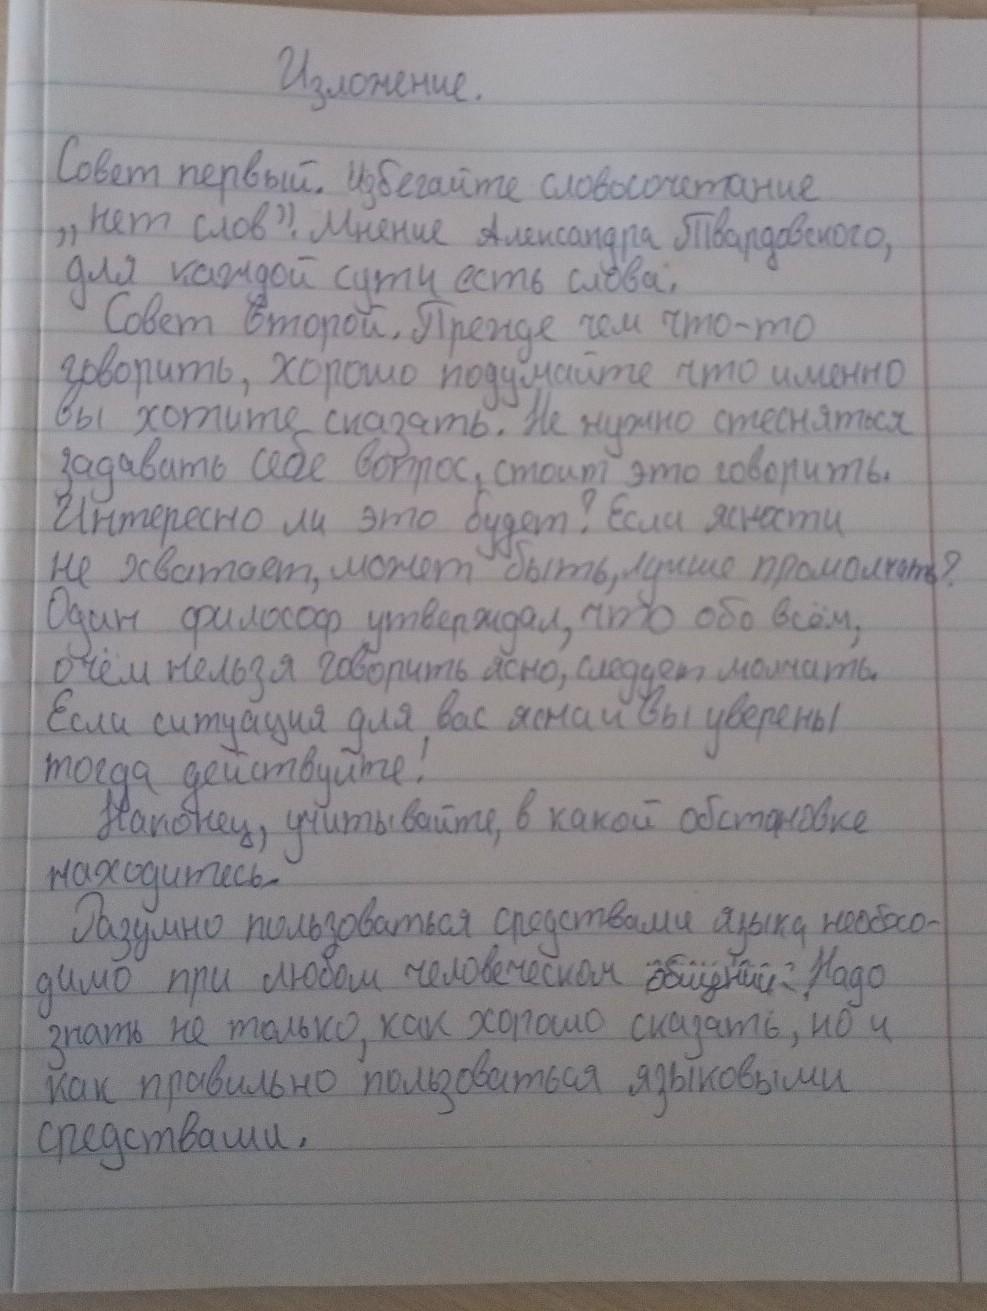 Изложение.
Совет первый. Избегайте словосочетание
„нет слов”. Мнение Александра Твардовского,
для каждой сути есть слова.
Совет второй. Прежде чем что-то
говорить, хорошо подумайте что именно
вы хотите сказать. Не нужно стесняться
задавать себе вопрос, стоит это говорить.
Интересно ли это будет? Если ясности
не хватает, может быть, лучше промолчать?
Один философ утверждал, что обо всём,
о чём нельзя говорить ясно, следует молчать.
Если ситуация для вас ясна и вы уверены
тогда действуйте!
Наконец, учитывайте, в какой обстановке
находитесь.
Разумно пользоваться средствами языка необхо-
димо при любом человеческом общении. Надо
знать не только, как хорошо сказать, но и
как правильно пользоваться языковыми
средствами.